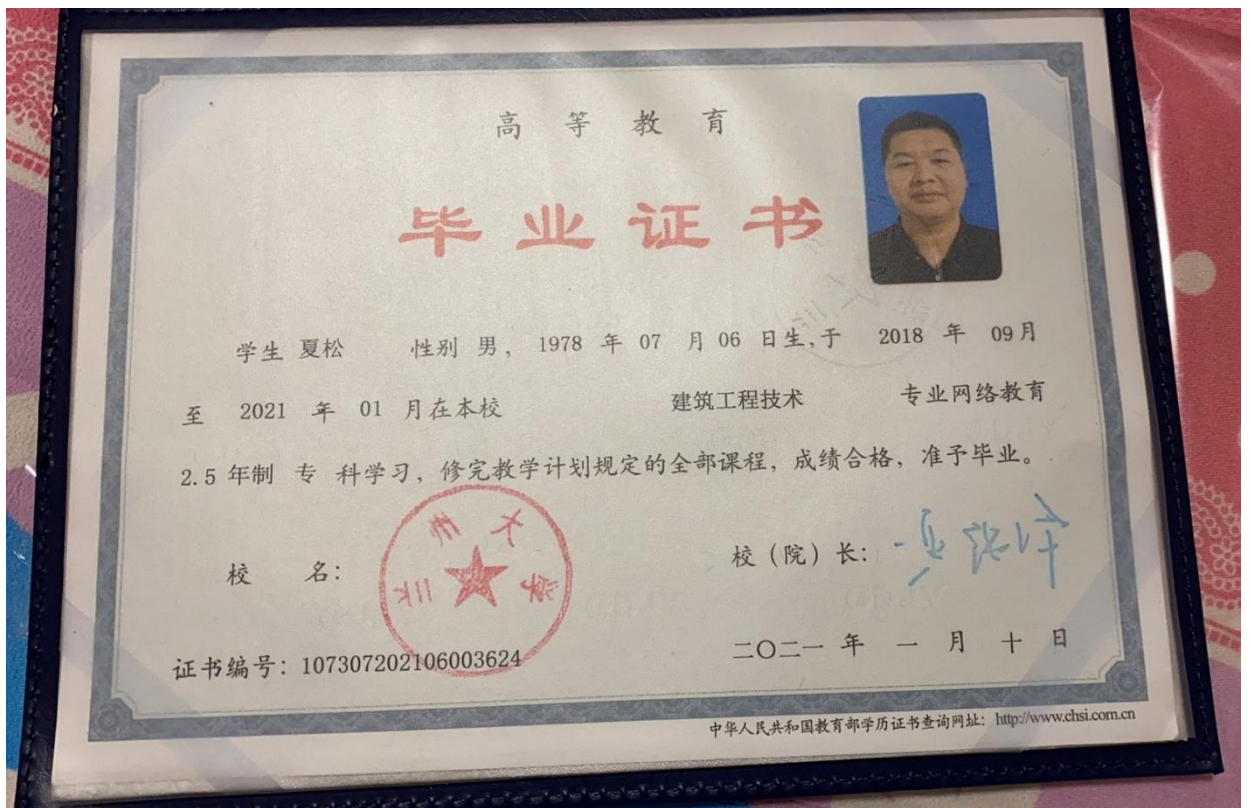 高等教育
毕业证书
学生 夏松 性别 男, 1978 年 07 月 06 日生,于 2018 年 09月
至 2021 年 01 月在本校 建筑工程技术 专业网络教育
2.5 年制 专 科学习，修完教学计划规定的全部课程，成绩合格，准予毕业。
校 名：
校（院）长：
证书编号：107307202106003624
二〇二一 年 一 月 十 日
中华人民共和国教育部学历证书查询网址：http://www.chsi.com.cn